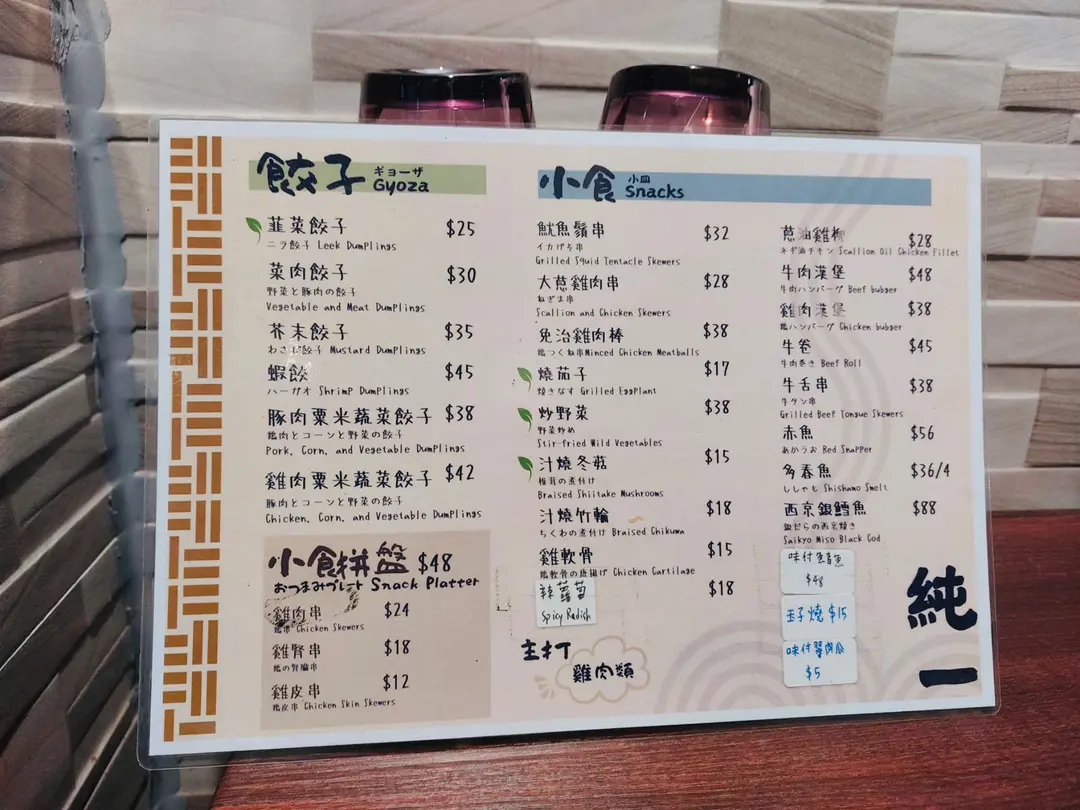 餃子 ギョーザ Gyoza
韮菜餃子 $25
ニラ餃子 Leek Dumplings
菜肉餃子 $30
野菜と豚肉の餃子
Vegetable and Meat Dumplings
芥末餃子 $35
わさび餃子 Mustard Dumplings
蝦餃 $45
ハーガオ Shrimp Dumplings
豚肉粟米蔬菜餃子 $38
鶏肉とコーンと野菜の餃子
Pork, Corn, and Vegetable Dumplings
雞肉粟米蔬菜餃子 $42
豚肉とコーンと野菜の餃子
Chicken, Corn, and Vegetable Dumplings
小食拼盤 $48
おつまみプレート Snack Platter
雞肉串 $24
鶏串 Chicken Skewers
雞腎串 $18
鶏の腎臓串
雞皮串 $12
鶏皮串 Chicken Skin Skewers
小食 小皿 Snacks
魷魚鬚串 $32
イカげそ串
Grilled Squid Tentacle Skewers
大蔥雞肉串 $28
ねぎま串
Scallion and Chicken Skewers
免治雞肉棒 $38
鶏つくね串Minced Chicken Meatballs
燒茄子 $17
焼きなす Grilled Eggplant
炒野菜 $38
野菜炒め
Stir-fried Wild Vegetables
汁燒冬菇 $15
椎茸の煮付け
Braised Shiitake Mushrooms
汁燒竹輪 $18
ちくわの煮付け Braised Chikuwa
雞軟骨 $15
鶏軟骨の唐揚げ Chicken Cartilage
辣蘿蔔 $18
Spicy Radish
主打
雞肉類
蔥油雞柳 $28
ネギ油チキン Scallion Oil Chicken Fillet
牛肉漢堡 $48
牛肉ハンバーグ Beef bubger
雞肉漢堡 $38
鶏ハンバーグ Chicken bubger
牛卷 $45
牛肉巻き Beef Roll
牛舌串 $38
牛タン串
Grilled Beef Tongue Skewers
赤魚 $56
あかうお Red Snapper
多春魚 $36/4
ししゃも Shishamo Smelt
西京銀鱈魚 $88
銀だらの西京焼き
Saikyo Miso Black Cod
味付
$48
玉子燒 $15
味付蟹肉
$5
純
一